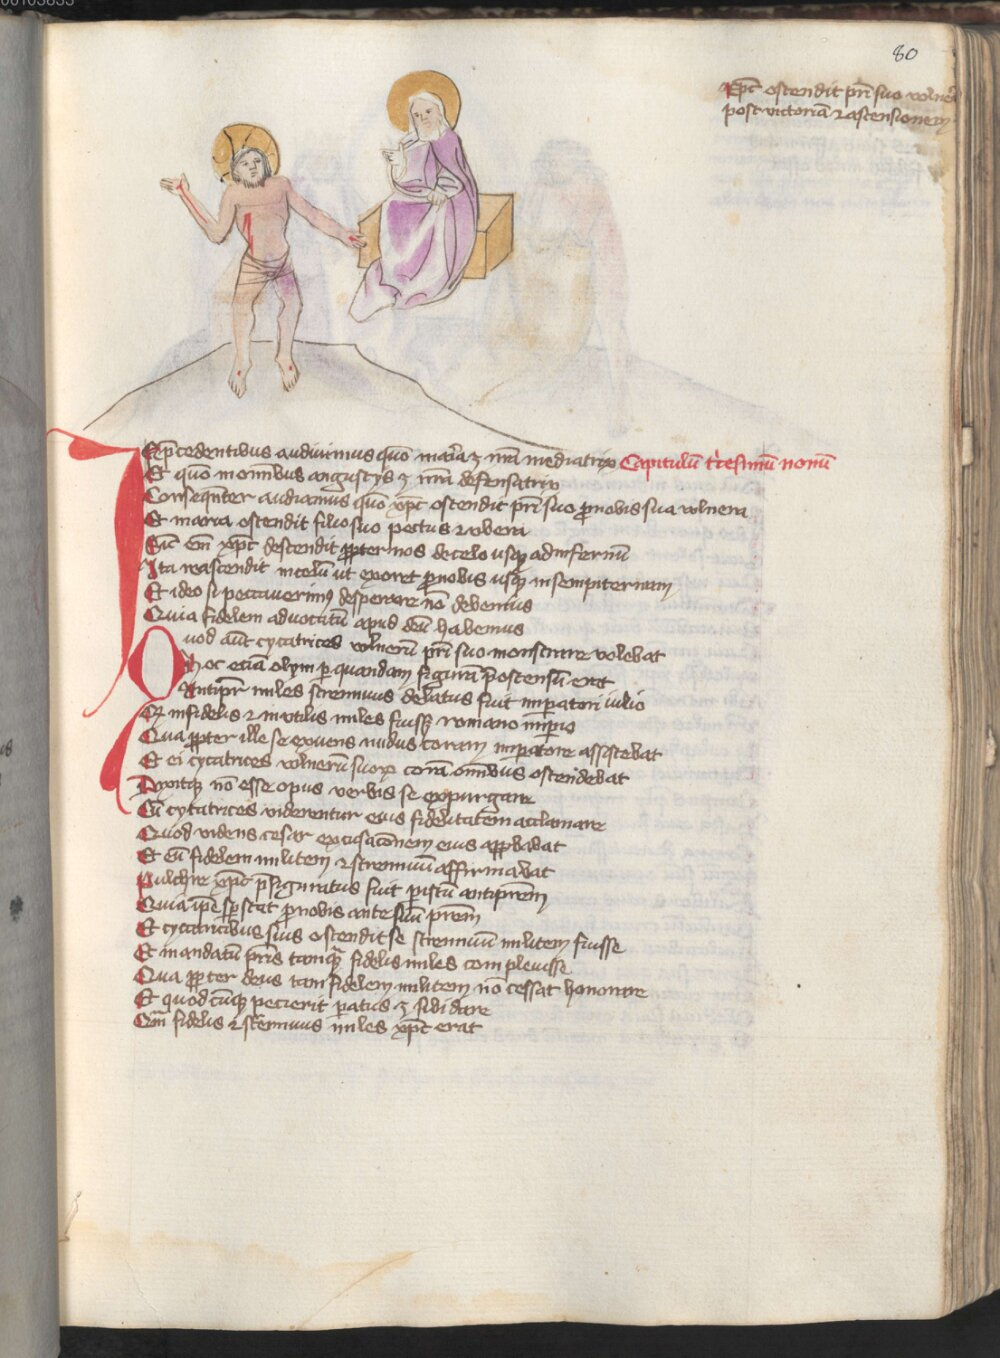 80
Xpc ostendit pri suo volnera
post victoriā ⁊ ascensionem
In p̄cedentibus audiuimus quō maria ꝫ nrā mediatrix Capitulū tricesimū nonū
Et quō in omnibus angustijs ꝫ nrā defensatrix
Conseqnter audiamus quō xpc ostendit pri suo ꝓ nobis sua vlnera
Et maria ostendit filio suo pectus ⁊ vbera
Sic em̄ xpc descendit ꝓpter nos de celo usqꝫ ad infernū
Ita reascendit in celū ut exoret ꝓ nobis usqꝫ in sempiternam
Et ideo si peccauerimꝰ desperare nō debemus
Quia fidelem aduocatū apud deū habemus
Quod aūt cycatrices volnerū pri suo monstrare volebat
Hoc etiā olym ꝑ quandam figurā p̄ostensū erat
Antipr miles strennuus delatus fuit imperatori iulio
Qꝫ infidelis ⁊ inutilis miles fuisꝫ romano impio
Qua ꝓpter ille se exuens nudus coram imperatore assistebat
Et ei cycatrices volnerū suoꝝ corā omnibus ostendebat
Dixitqꝫ nō esse opus verbis se expurgare
Cū cycatrices viderentur eius fidelitatem acclamare
Quod videns cesar excusacōnem eius approbabat
Et eū fidelem militem ⁊ strennuū affirmabat
Pulchre xpc p̄figuratus fuit ꝑ istū antiprem
Quia ipse sp stat ꝓ nobis ante suū prem
Et cycatricibus suis ostendit se strennuū militem fuisse
Et mandatū pris tamqꝫ fidelis miles compleuisse
Qua ꝓpter deus tam fidelem militem nō cessat honorare
Et quodcūqꝫ pecierit paratus ꝫ sibi dare
Qm̄ fidelis ⁊ strennuus miles xpc erat